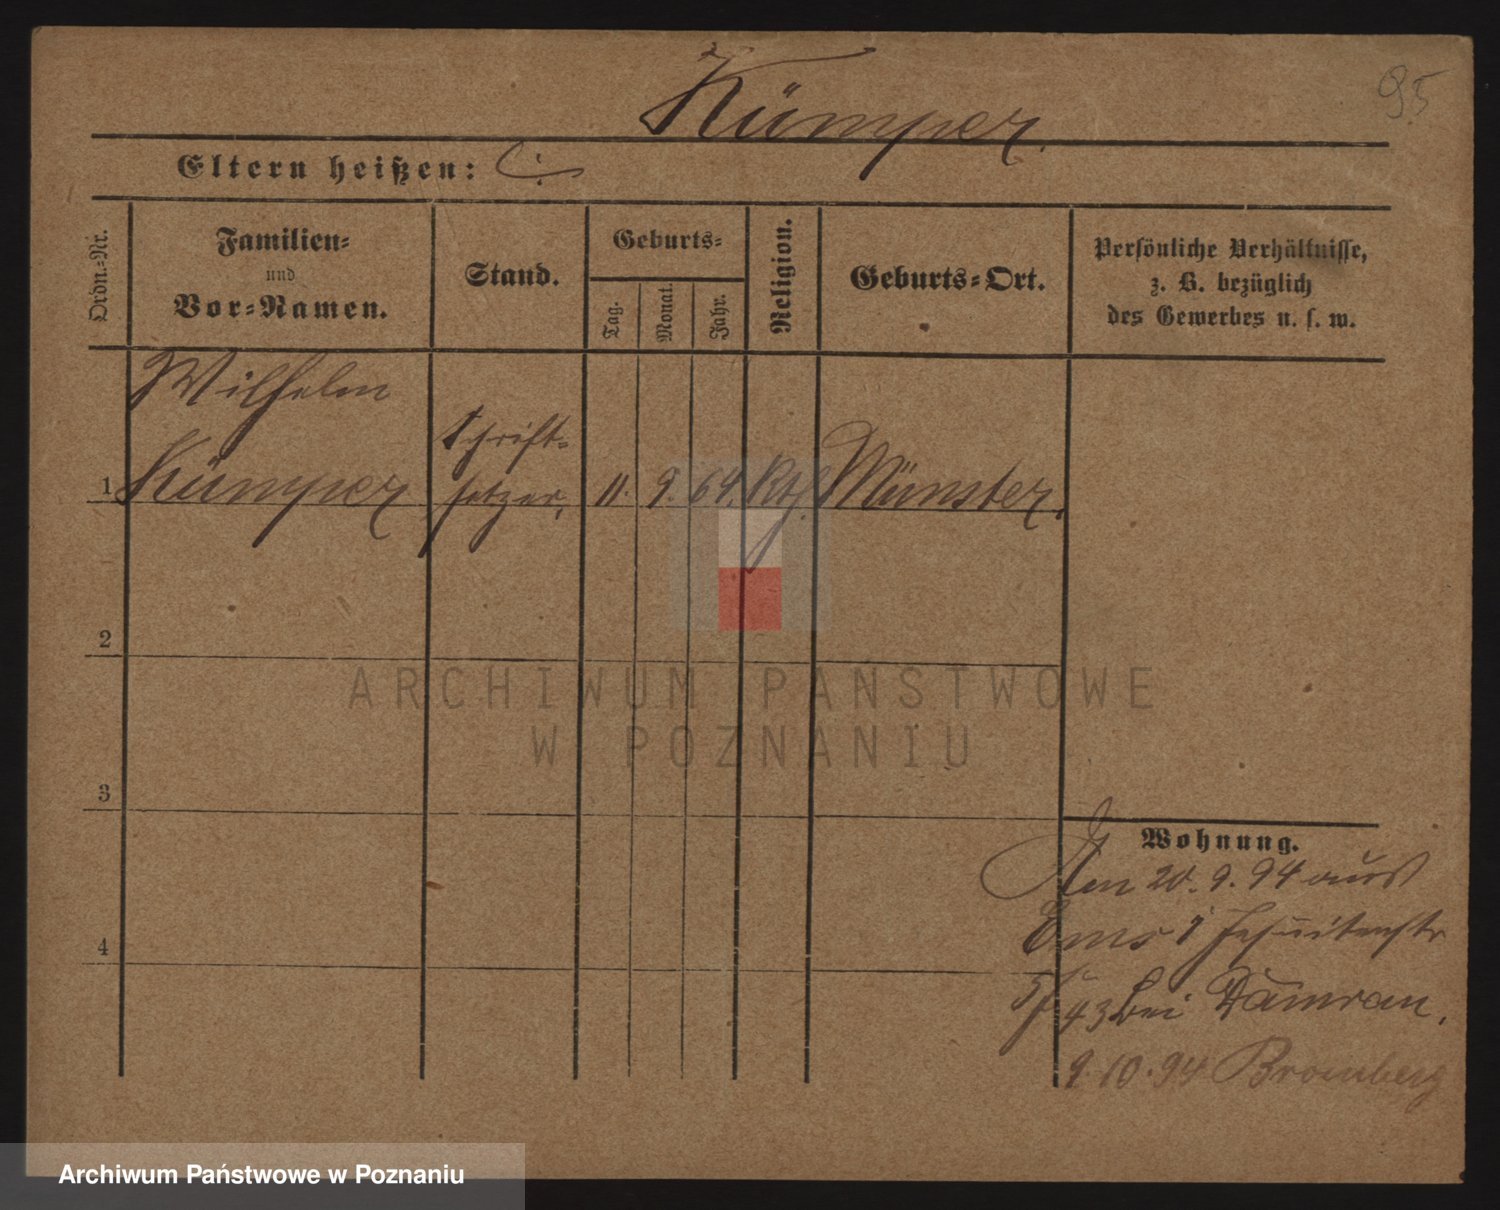 Kümper.
95
Eltern heißen:
Ordn.-Nr.
Familien-
und
Vor-Namen.
Stand.
Geburts-
Tag.
Monat.
Jahr.
Religion.
Geburts-Ort.
Persönliche Verhältnisse,
z. B. bezüglich
des Gewerbes u. s. w.
Wilhelm
Kümper
Schrift-
setzer,
1
11. 9. 64. Kth. Münster.
2
3
4
Wohnung.
Am 20. 9. 94 aus
Ems Jesuitenstr
43 bei
9. 10. 94 Bromberg
ARCHIWUM PAŃSTWOWE
W POZNANIU
Archiwum Państwowe w Poznaniu